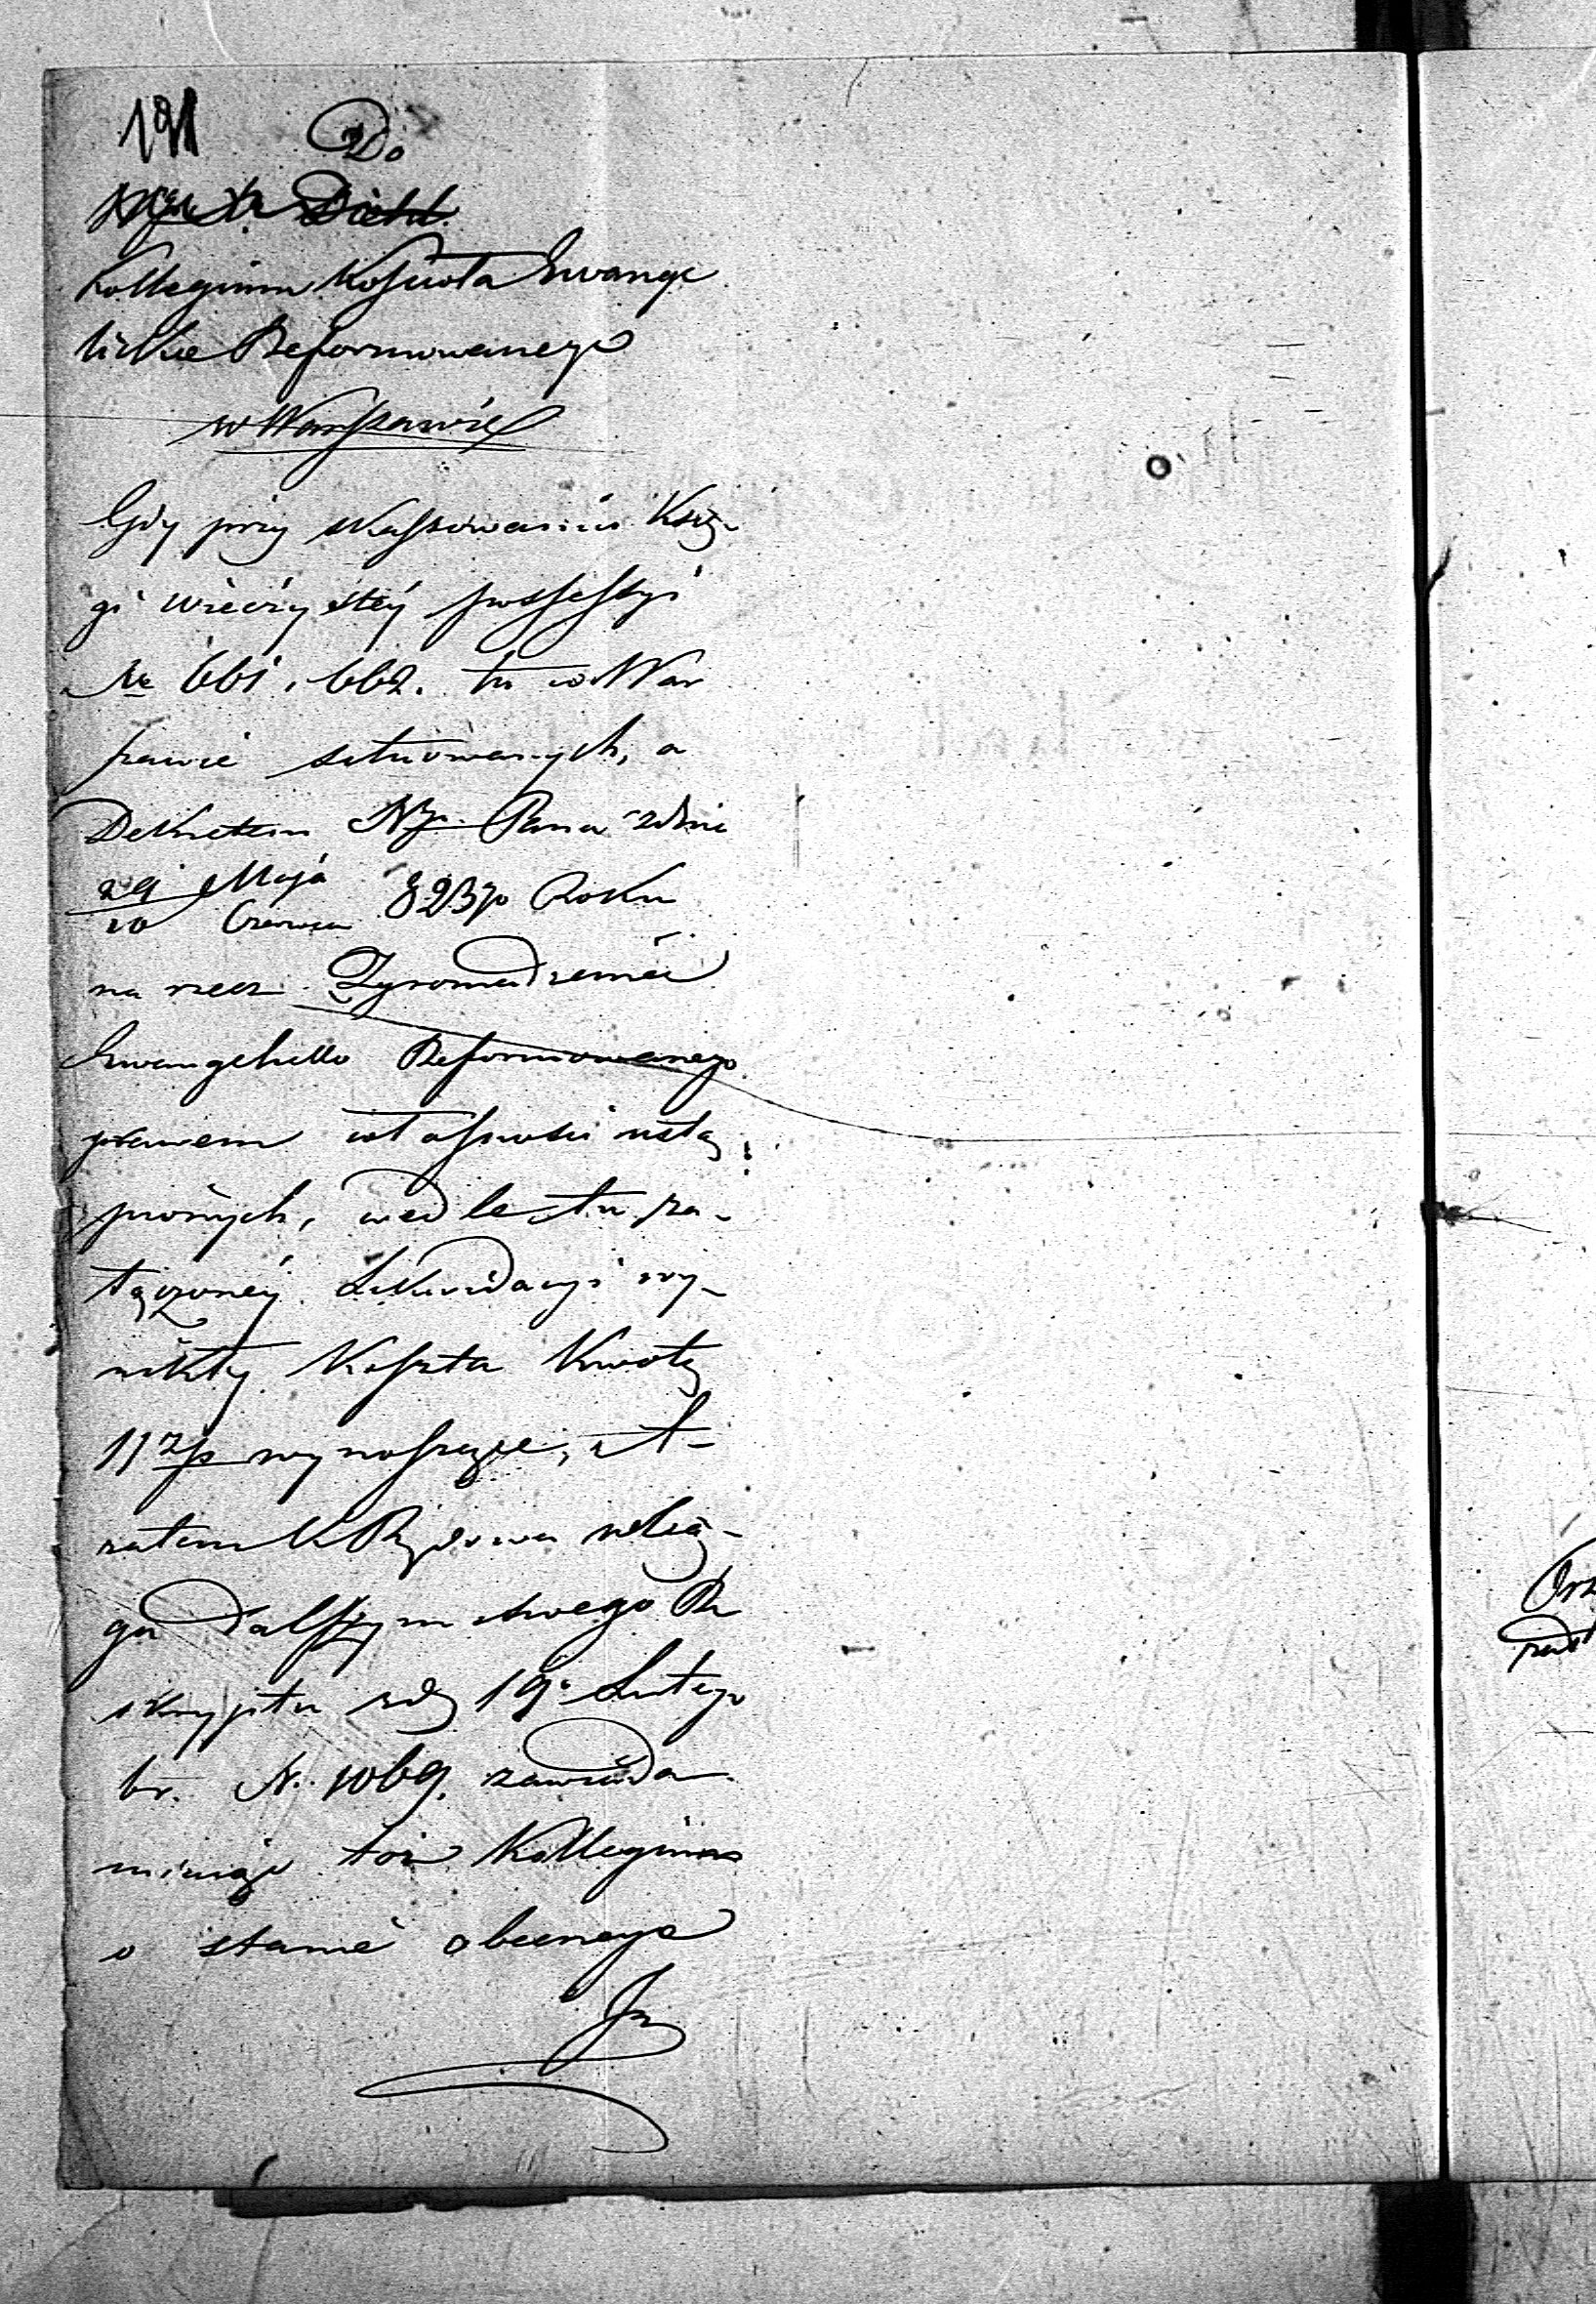 191 Do
Kollegium Kościoła Ewange
lickie Reformowanego
w Warszawie
Gdy przy skassowaniu Księ-
gi wieczystéy possessyi
Nr 661, 662. tu w War
szawie sytuowanych, a
Dekretem Nj. Pana z dnia
29 Maja
10 Czerwca 823go Roku
na rzecz Zgromadzenia
Ewangelicko Reformowanego
prawem własności ustą
pionych, wedle tu za-
łączonéy Likwidacyi wy-
nikły Koszta Kwotę
11 zp wynoszące,
zatem
ga dalszym swego Re
skryptu z d. 19. Lutego
br. N. 1069. zawiada
miając toż Kollegium
o stanie obecnego
Orz